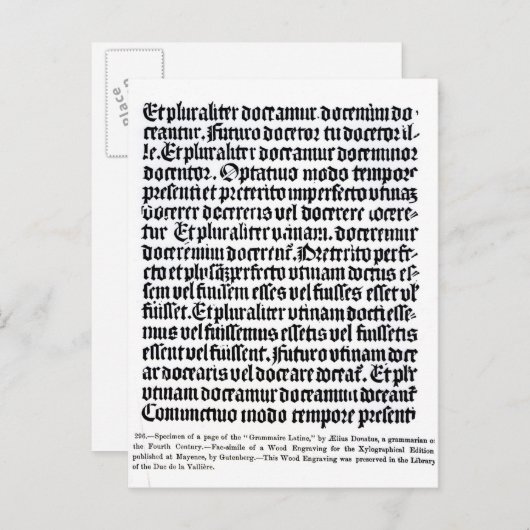 Place
Et pluraliter doceamur doceminī do-
ceantur. Futuro docetor tu docetor il-
le. Et pluraliter doceamur doceminor
docentor. Optatiuo modo tempore
presenti et preterito imperfecto vtinaꝫ
docerer docereris vel docerere docere-
tur Et pluraliter vtinam. doceremur
doceremini docerent᷑. Preterito perfe-
cto et plusq̄ꝫperfecto vtinam doctus es-
sem vel fuissem esses vel fuisses esset vl̓
fuisset. Et pluraliter vtinam docti esse-
mus vel fuissemus essetis vel fuissetis
essent vel fuissent. Futuro vtinam doce
ar docearis vel doceare doceat᷑. Et pl̓r
vtinam doceamur doceamini doceant᷑
Coniunctiuo modo tempore presenti
296.—Specimen of a page of the "Grammaire Latine," by Ælius Donatus, a grammarian of
the Fourth Century.—Fac-simile of a Wood Engraving for the Xylographical Edition
published at Mayence, by Gutenberg.—This Wood Engraving was preserved in the Library
of the Duc de la Vallière.